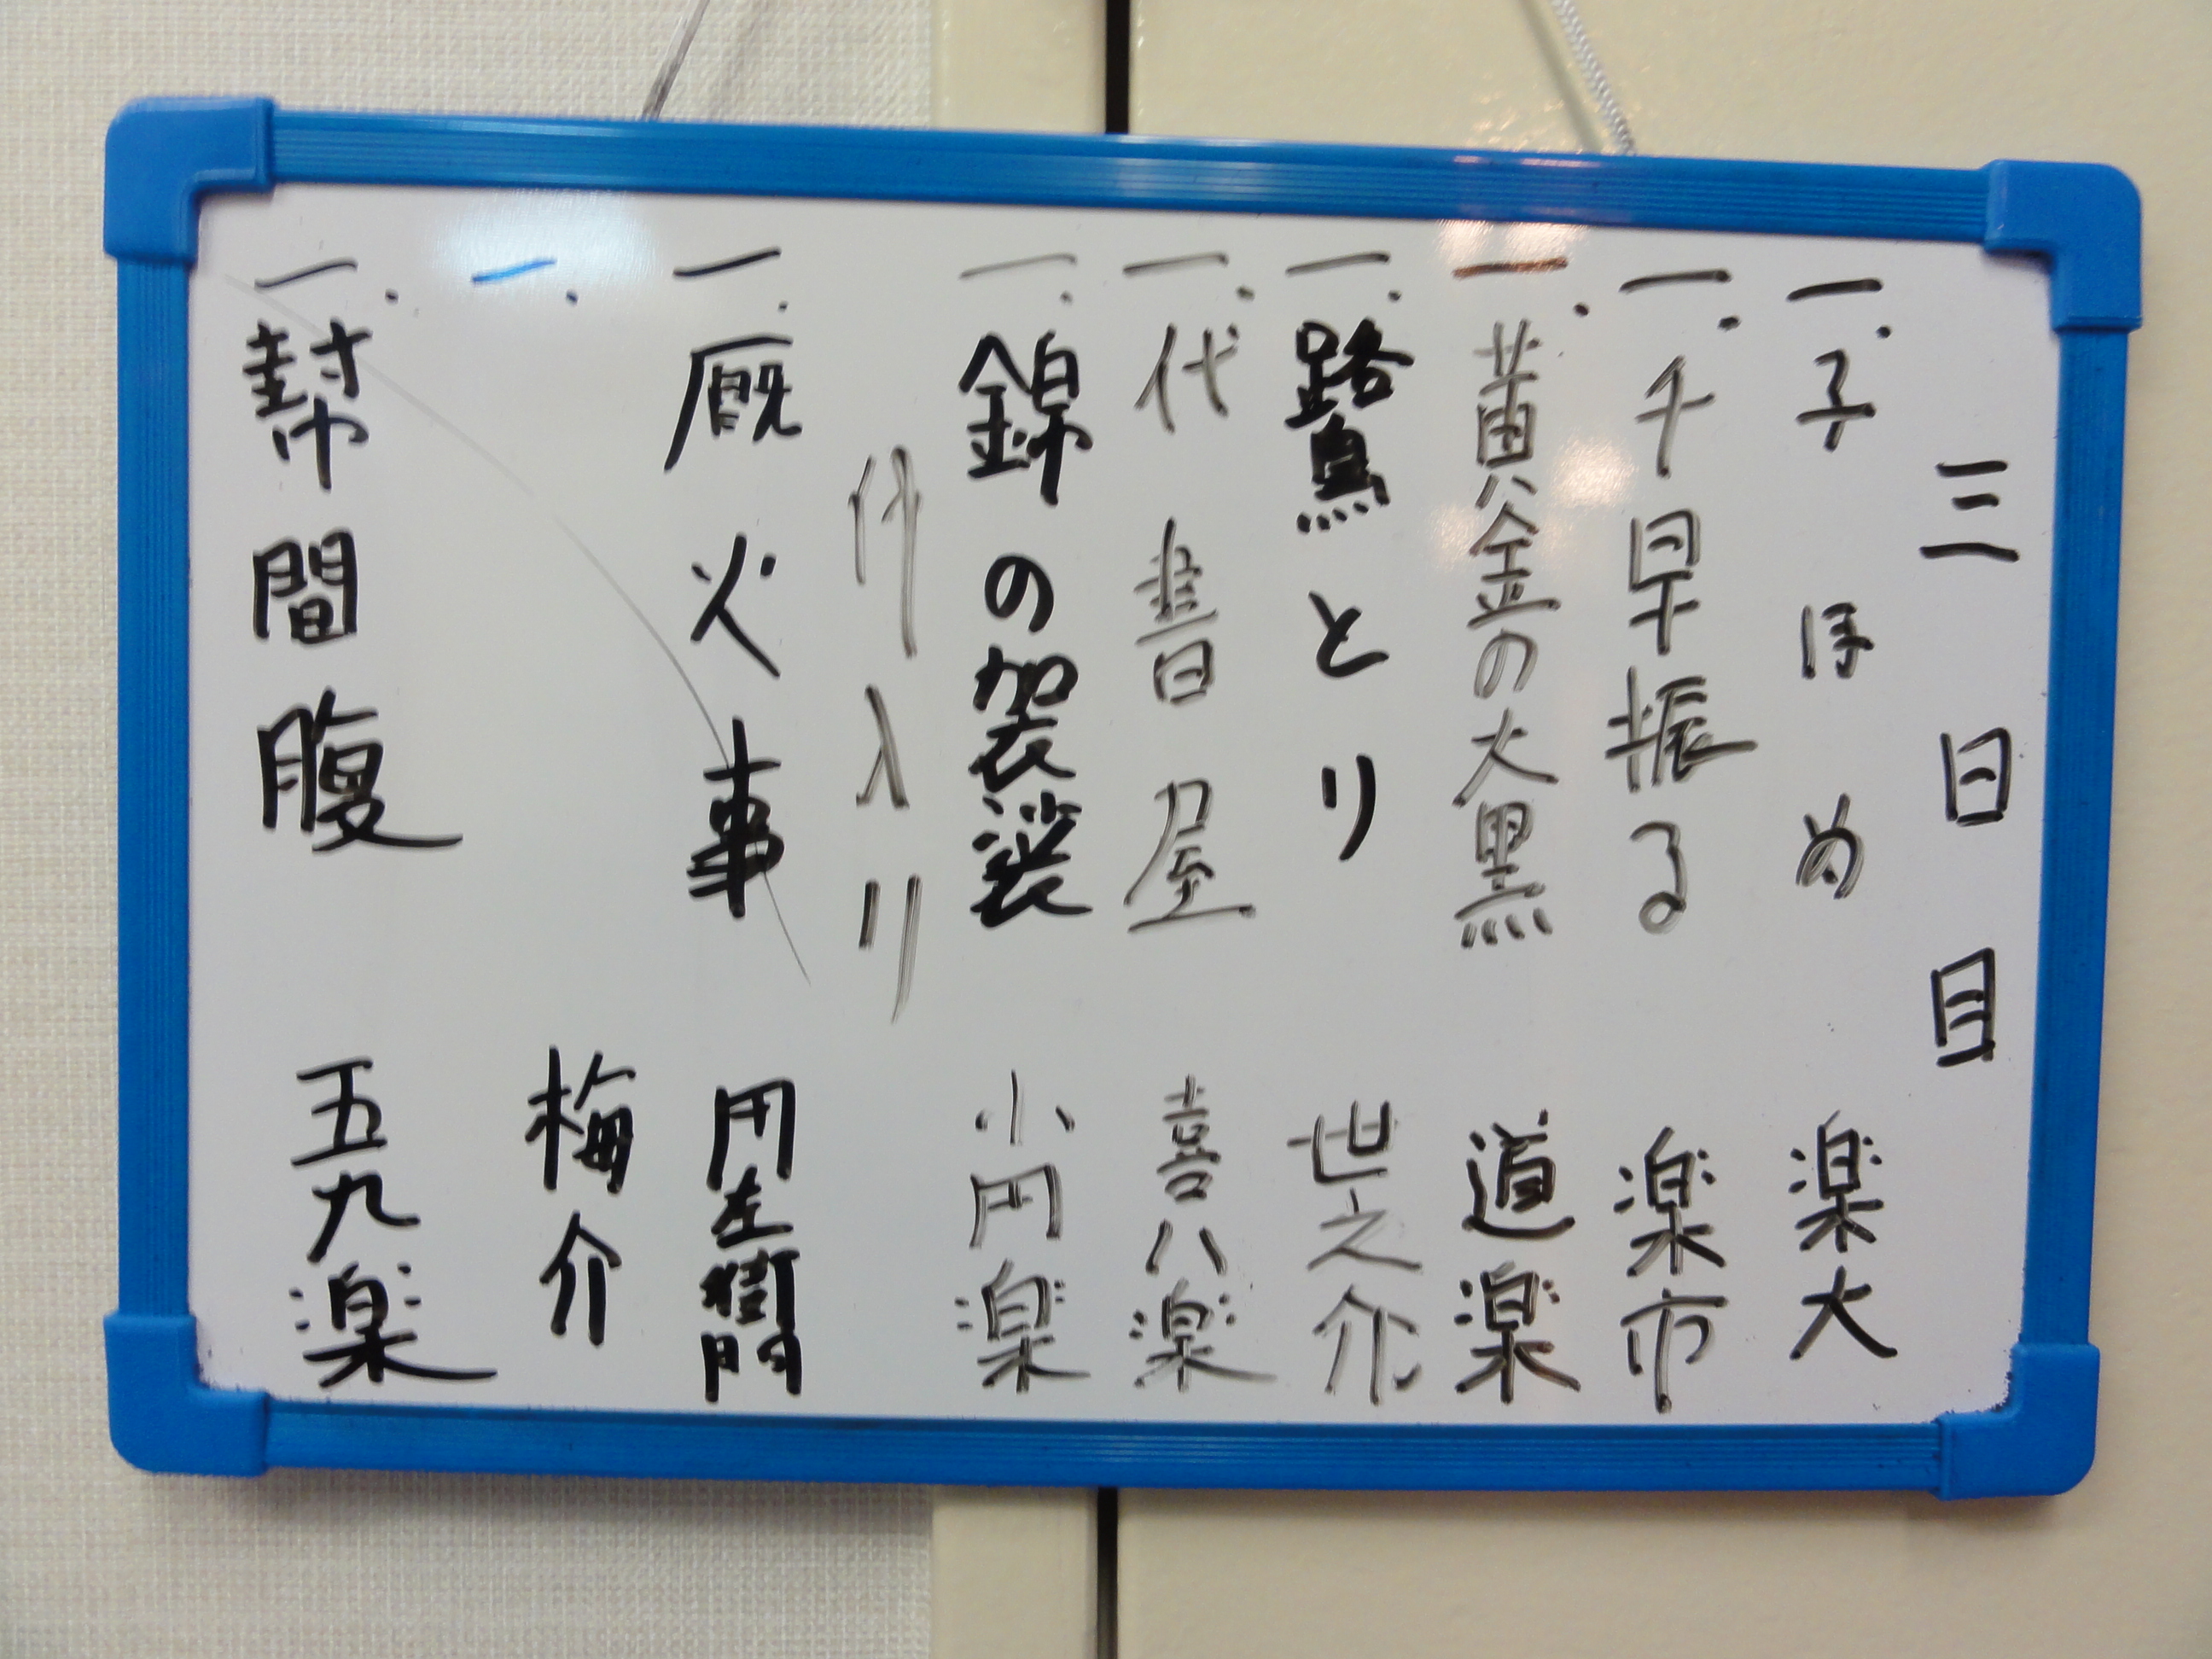 三日目
一.子ほめ 楽大
一.千早振る 楽市
一.黄金の大黒 道楽
一.鷺とり 世之介
一.代書屋 喜八楽
一.錦の袈裟 小円楽
仲入り
一.厩火事 円左衛門
一. 梅介
一.幇間腹 五九楽